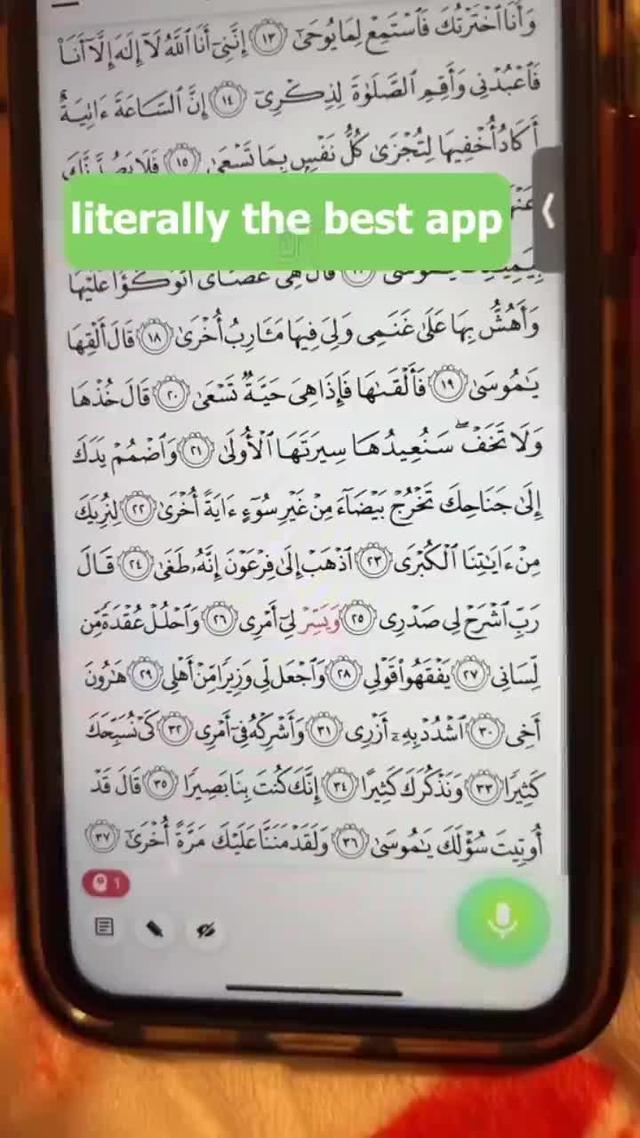 وَأَنَا ٱخْتَرْتُكَ فَٱسْتَمِعْ لِمَا يُوحَىٰٓ ١٣ إِنَّنِىٓ أَنَا ٱللَّهُ لَآ إِلَٰهَ إِلَّآ أَنَا۠
فَٱعْبُدْنِى وَأَقِمِ ٱلصَّلَوٰةَ لِذِكْرِىٓ ١٤ إِنَّ ٱلسَّاعَةَ ءَاتِيَةٌ
أَكَادُ أُخْفِيهَا لِتُجْزَىٰ كُلُّ نَفْسٍۭ بِمَا تَسْعَىٰ ١٥ فَلَا يَصُدَّنَّكَ
literally the best app
قَالَ هِىَ عَصَاىَ أَتَوَكَّؤُا۟ عَلَيْهَا
وَأَهُشُّ بِهَا عَلَىٰ غَنَمِى وَلِىَ فِيهَا مَـَٔارِبُ أُخْرَىٰ ١٨ قَالَ أَلْقِهَا
يَٰمُوسَىٰ ١٩ فَأَلْقَىٰهَا فَإِذَا هِىَ حَيَّةٌ تَسْعَىٰ ٢٠ قَالَ خُذْهَا
وَلَا تَخَفْ ۖ سَنُعِيدُهَا سِيرَتَهَا ٱلْأُولَىٰ ٢١ وَٱضْمُمْ يَدَكَ
إِلَىٰ جَنَاحِكَ تَخْرُجْ بَيْضَآءَ مِنْ غَيْرِ سُوٓءٍ ءَايَةً أُخْرَىٰ ٢٢ لِنُرِيَكَ
مِنْ ءَايَٰتِنَا ٱلْكُبْرَى ٢٣ ٱذْهَبْ إِلَىٰ فِرْعَوْنَ إِنَّهُۥ طَغَىٰ ٢٤ قَالَ
رَبِّ ٱشْرَحْ لِى صَدْرِى ٢٥ وَيَسِّرْ لِىٓ أَمْرِى ٢٦ وَٱحْلُلْ عُقْدَةً مِّن
لِّسَانِى ٢٧ يَفْقَهُوا۟ قَوْلِى ٢٨ وَٱجْعَل لِّى وَزِيرًا مِّنْ أَهْلِى ٢٩ هَٰرُونَ
أَخِى ٣٠ ٱشْدُدْ بِهِۦٓ أَزْرِى ٣١ وَأَشْرِكْهُ فِىٓ أَمْرِى ٣٢ كَىْ نُسَبِّحَكَ
كَثِيرًا ٣٣ وَنَذْكُرَكَ كَثِيرًا ٣٤ إِنَّكَ كُنتَ بِنَا بَصِيرًا ٣٥ قَالَ قَدْ
أُوتِيتَ سُؤْلَكَ يَٰمُوسَىٰ ٣٦ وَلَقَدْ مَنَنَّا عَلَيْكَ مَرَّةً أُخْرَىٰٓ ٣٧
1